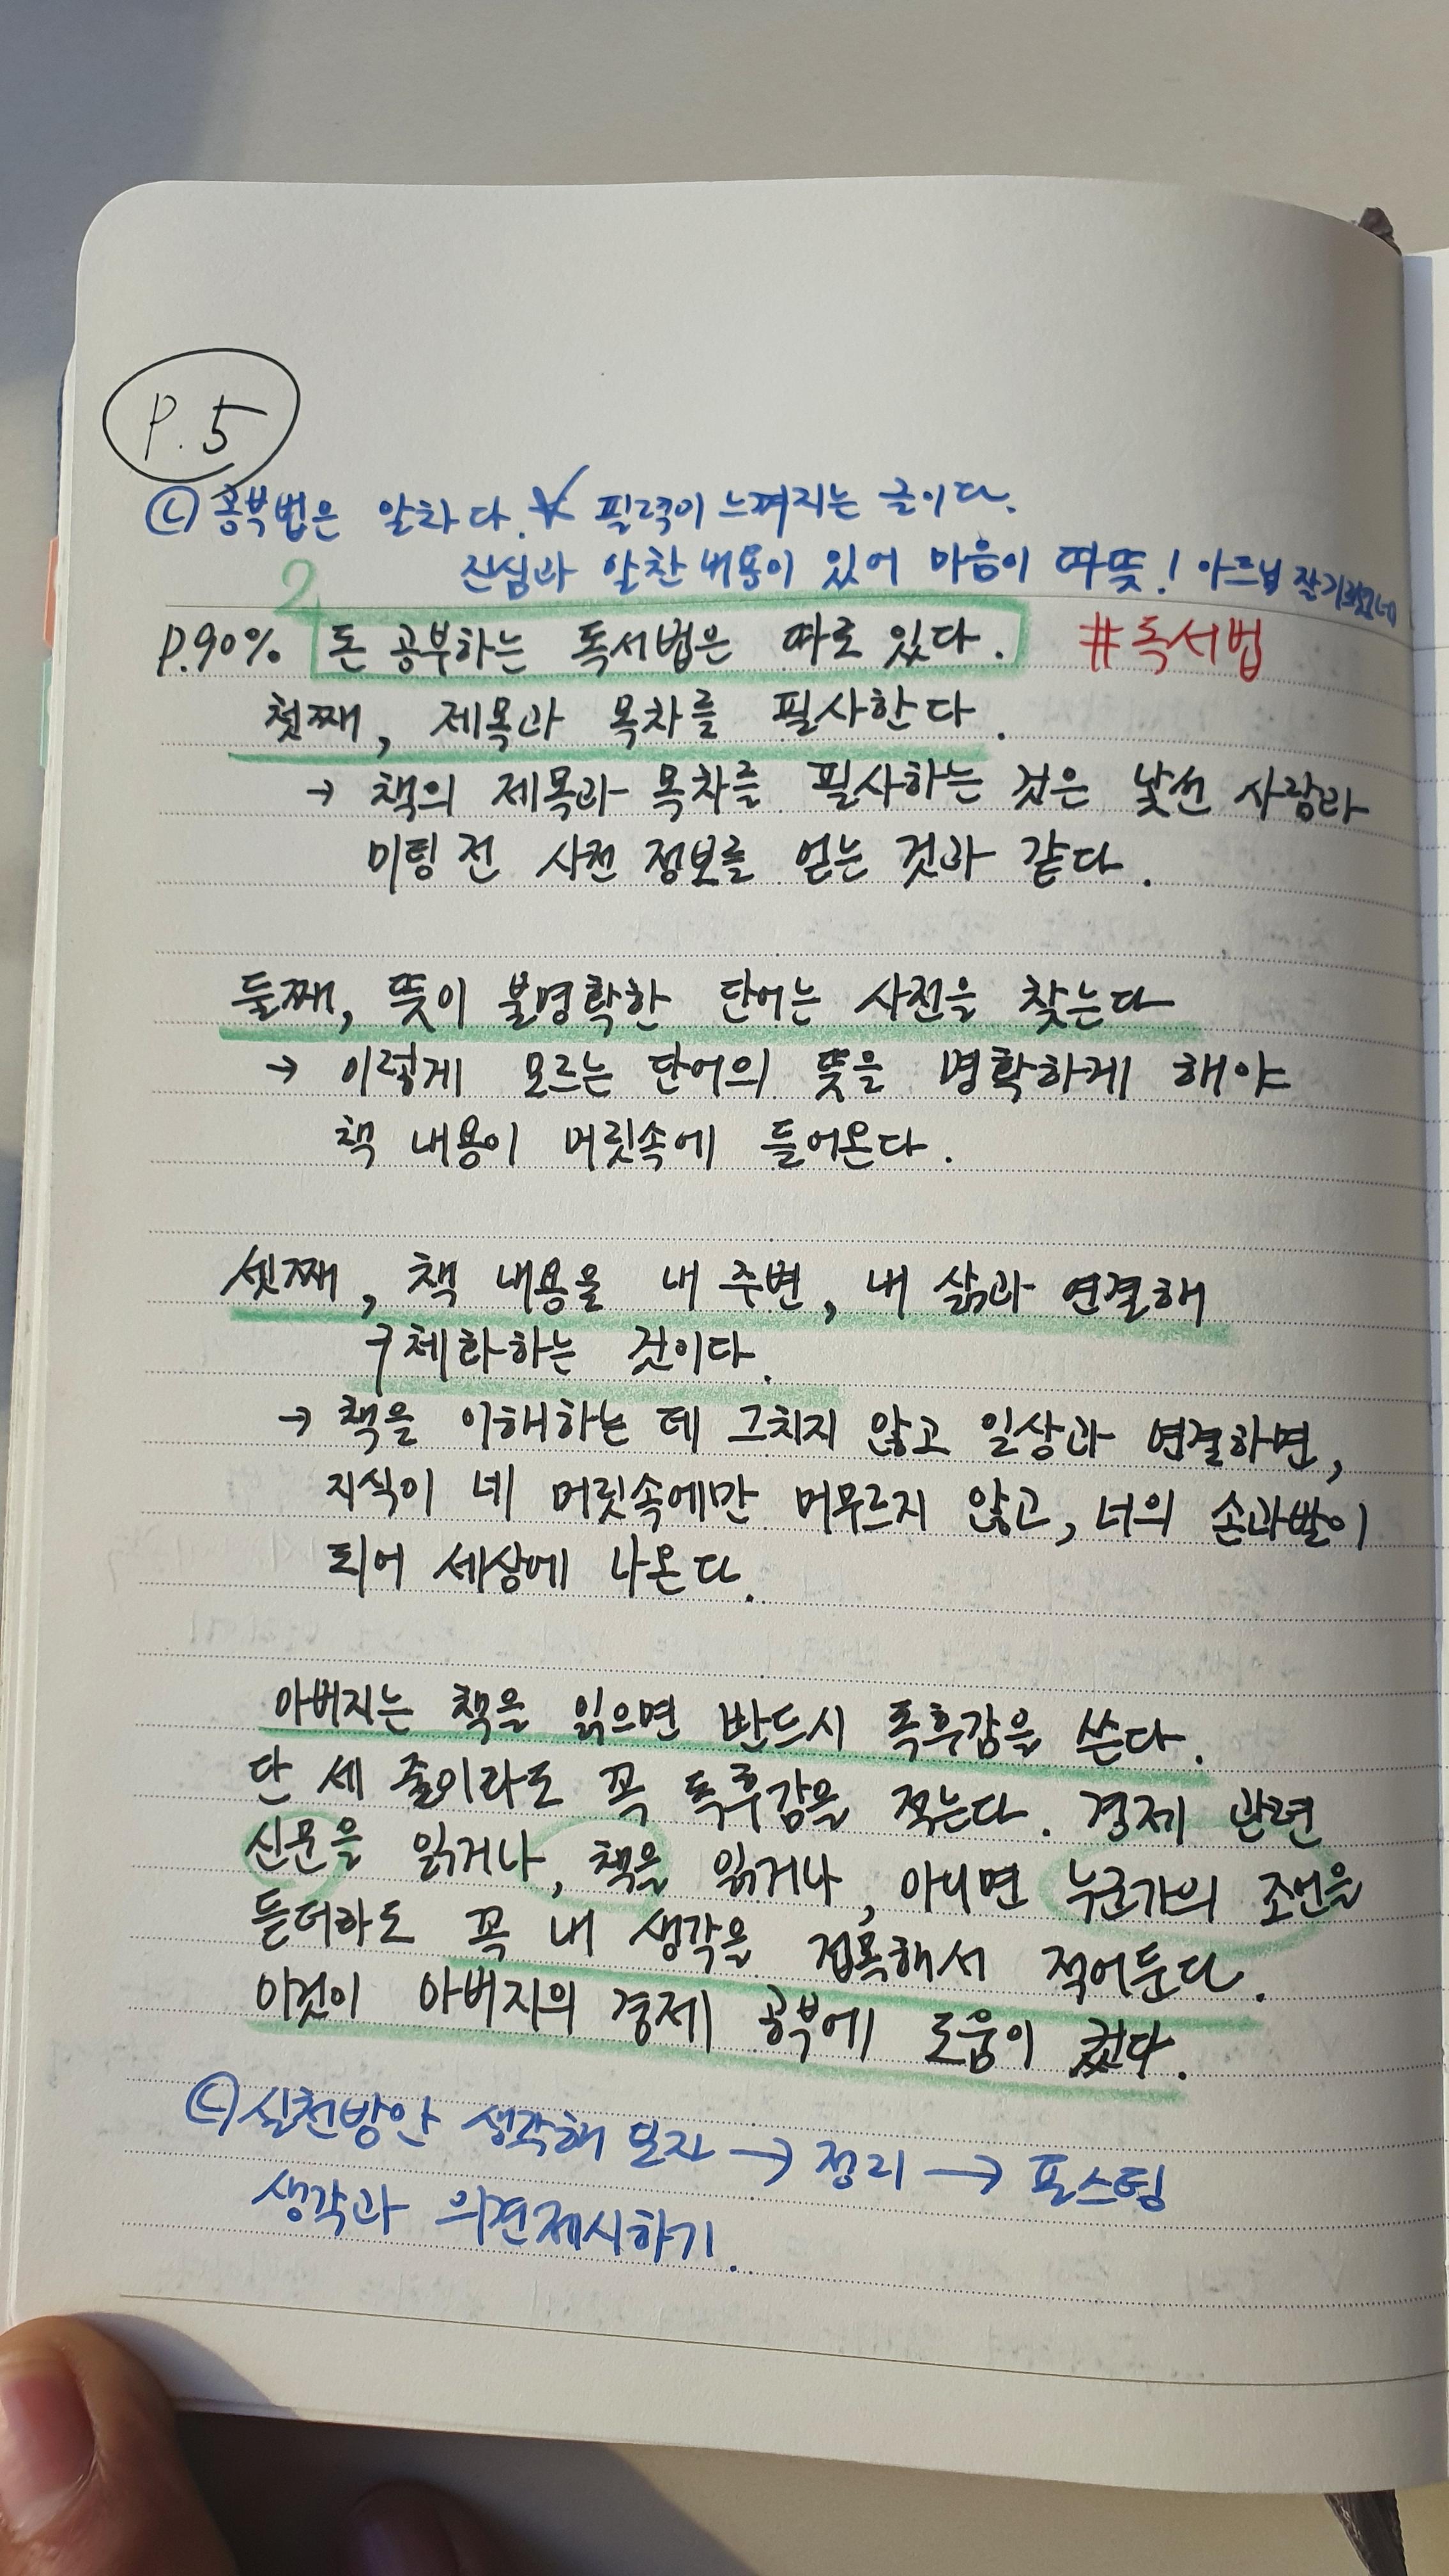 P.5
ⓒ 공부법은 알차다. ★ 필력이 느껴지는 글이다.
진심과 알찬 내용이 있어 마음이 따뜻! 아드님 잘
2
P.90% 돈 공부하는 독서법은 따로 있다. #독서법
첫째, 제목과 목차를 필사한다.
→ 책의 제목과 목차를 필사하는 것은 낯선 사람과
미팅 전 사전 정보를 얻는 것과 같다.
둘째, 뜻이 불명확한 단어는 사전을 찾는다
→ 이렇게 모르는 단어의 뜻을 명확하게 해야
책 내용이 머릿속에 들어온다.
셋째, 책 내용을 내 주변, 내 삶과 연결해
구체화하는 것이다.
→ 책을 이해하는 데 그치지 않고 일상과 연결하면,
지식이 네 머릿속에만 머무르지 않고, 너의 손과발이
되어 세상에 나온다.
아버지는 책을 읽으면 반드시 독후감을 쓴다.
단 세 줄이라도 꼭 독후감을 적는다. 경제 관련
신문을 읽거나, 책을 읽거나, 아니면 누군가의 조언을
듣더라도 꼭 내 생각을 접목해서 적어둔다.
이것이 아버지의 경제 공부에 도움이 컸다.
ⓒ 실천방안 생각해 보자 → 정리 → 포스팅
생각과 의견제시하기.